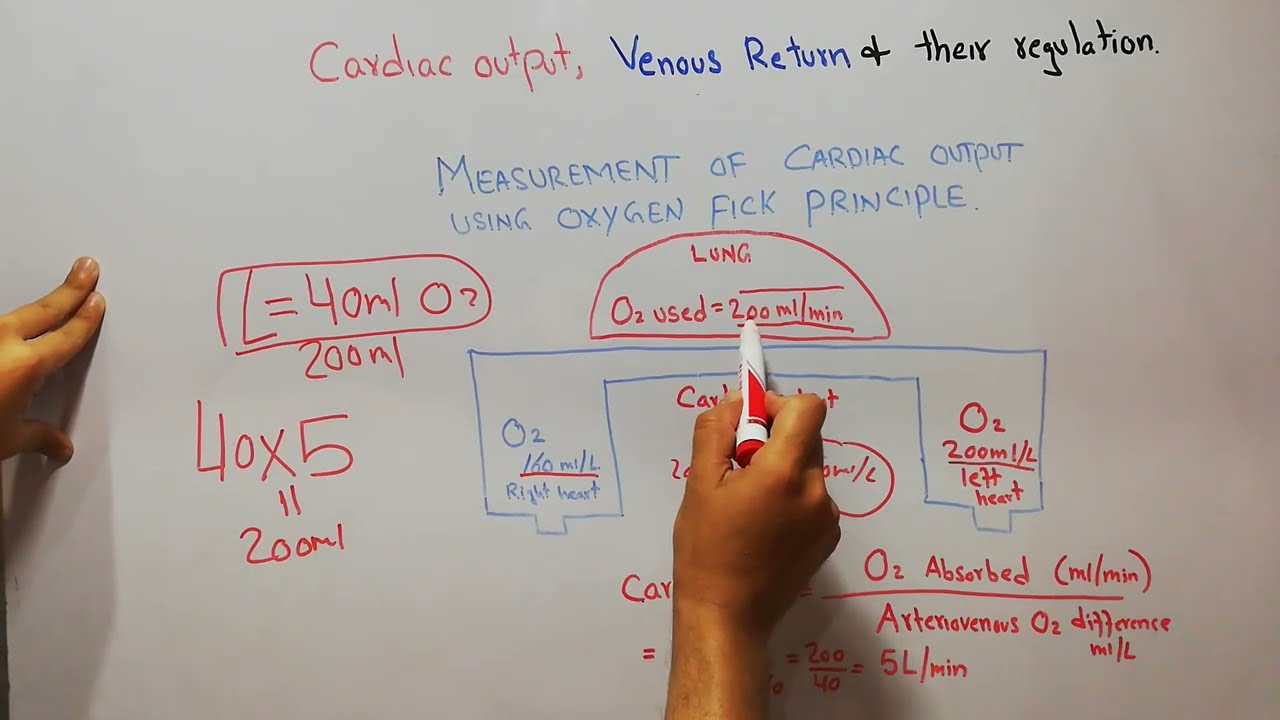 Cardiac output, Venous Return & their regulation.
MEASUREMENT OF CARDIAC OUTPUT
USING OXYGEN FICK PRINCIPLE.
LUNG
O2 used = 200 ml/min
L = 40ml O2
200ml
40x5
=
200ml
O2
160 ml/L
Right heart
O2
200ml/L
left
heart
ml/L
= O2 Absorbed (ml/min)
Arteriovenous O2 difference
ml/L
= = 200/40 = 5L/min